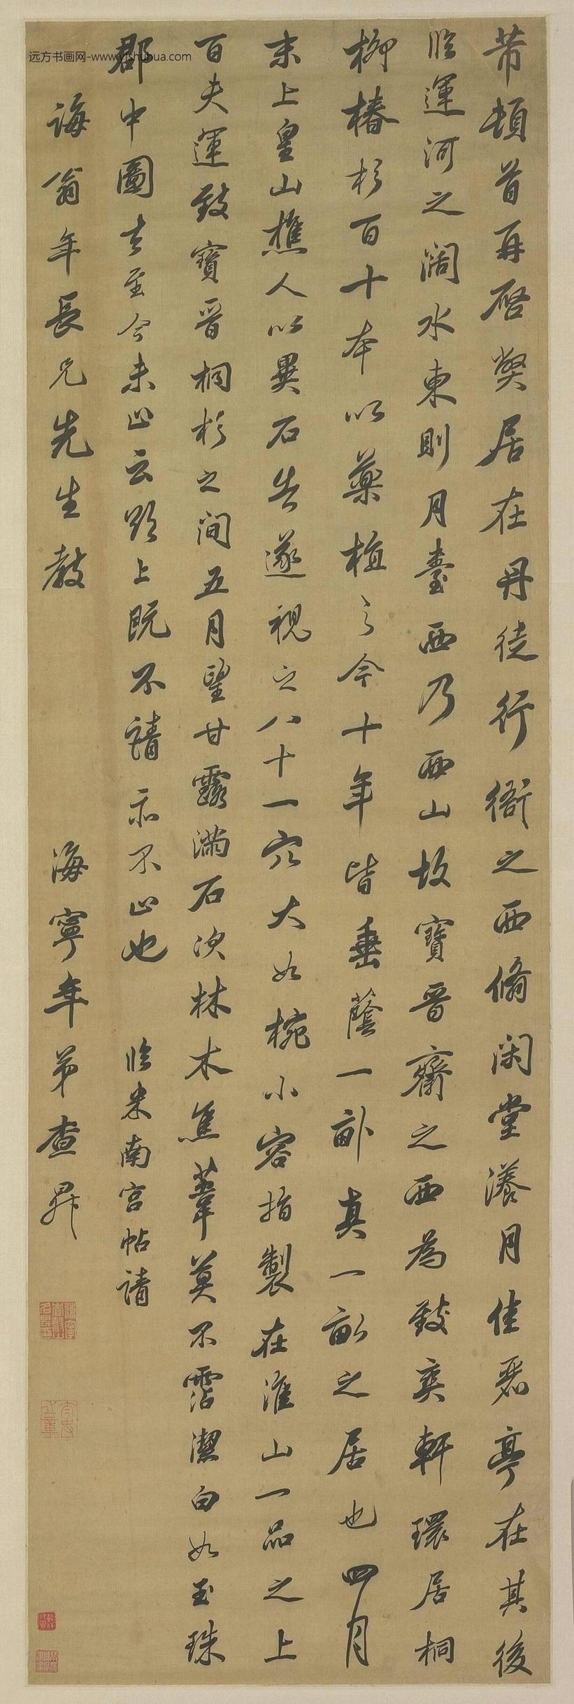 芾頓首再啓弊居在丹徒行衙之西翛閑堂漾月佳麗亭在其後
臨運河之闊水東則月臺西乃西山故寶晉齋之西為致爽軒環居桐
柳椿杉百十本以藥植之今十年皆垂蔭一畝真一畝之居也四月
末上皇山樵人以異石告遂視之八十一穴大如椀小容指製在淮山一品之上
百夫運致寶晉桐杉之間五月望甘露滿石次林木焦葦莫不霑潔白如玉珠
郡中圖去至今未止云欲上既不請亦不止也 臨米南宮帖請
誨翁年長兄先生教 海寧年弟查昇
远方书画网-www.yfshuhua.com